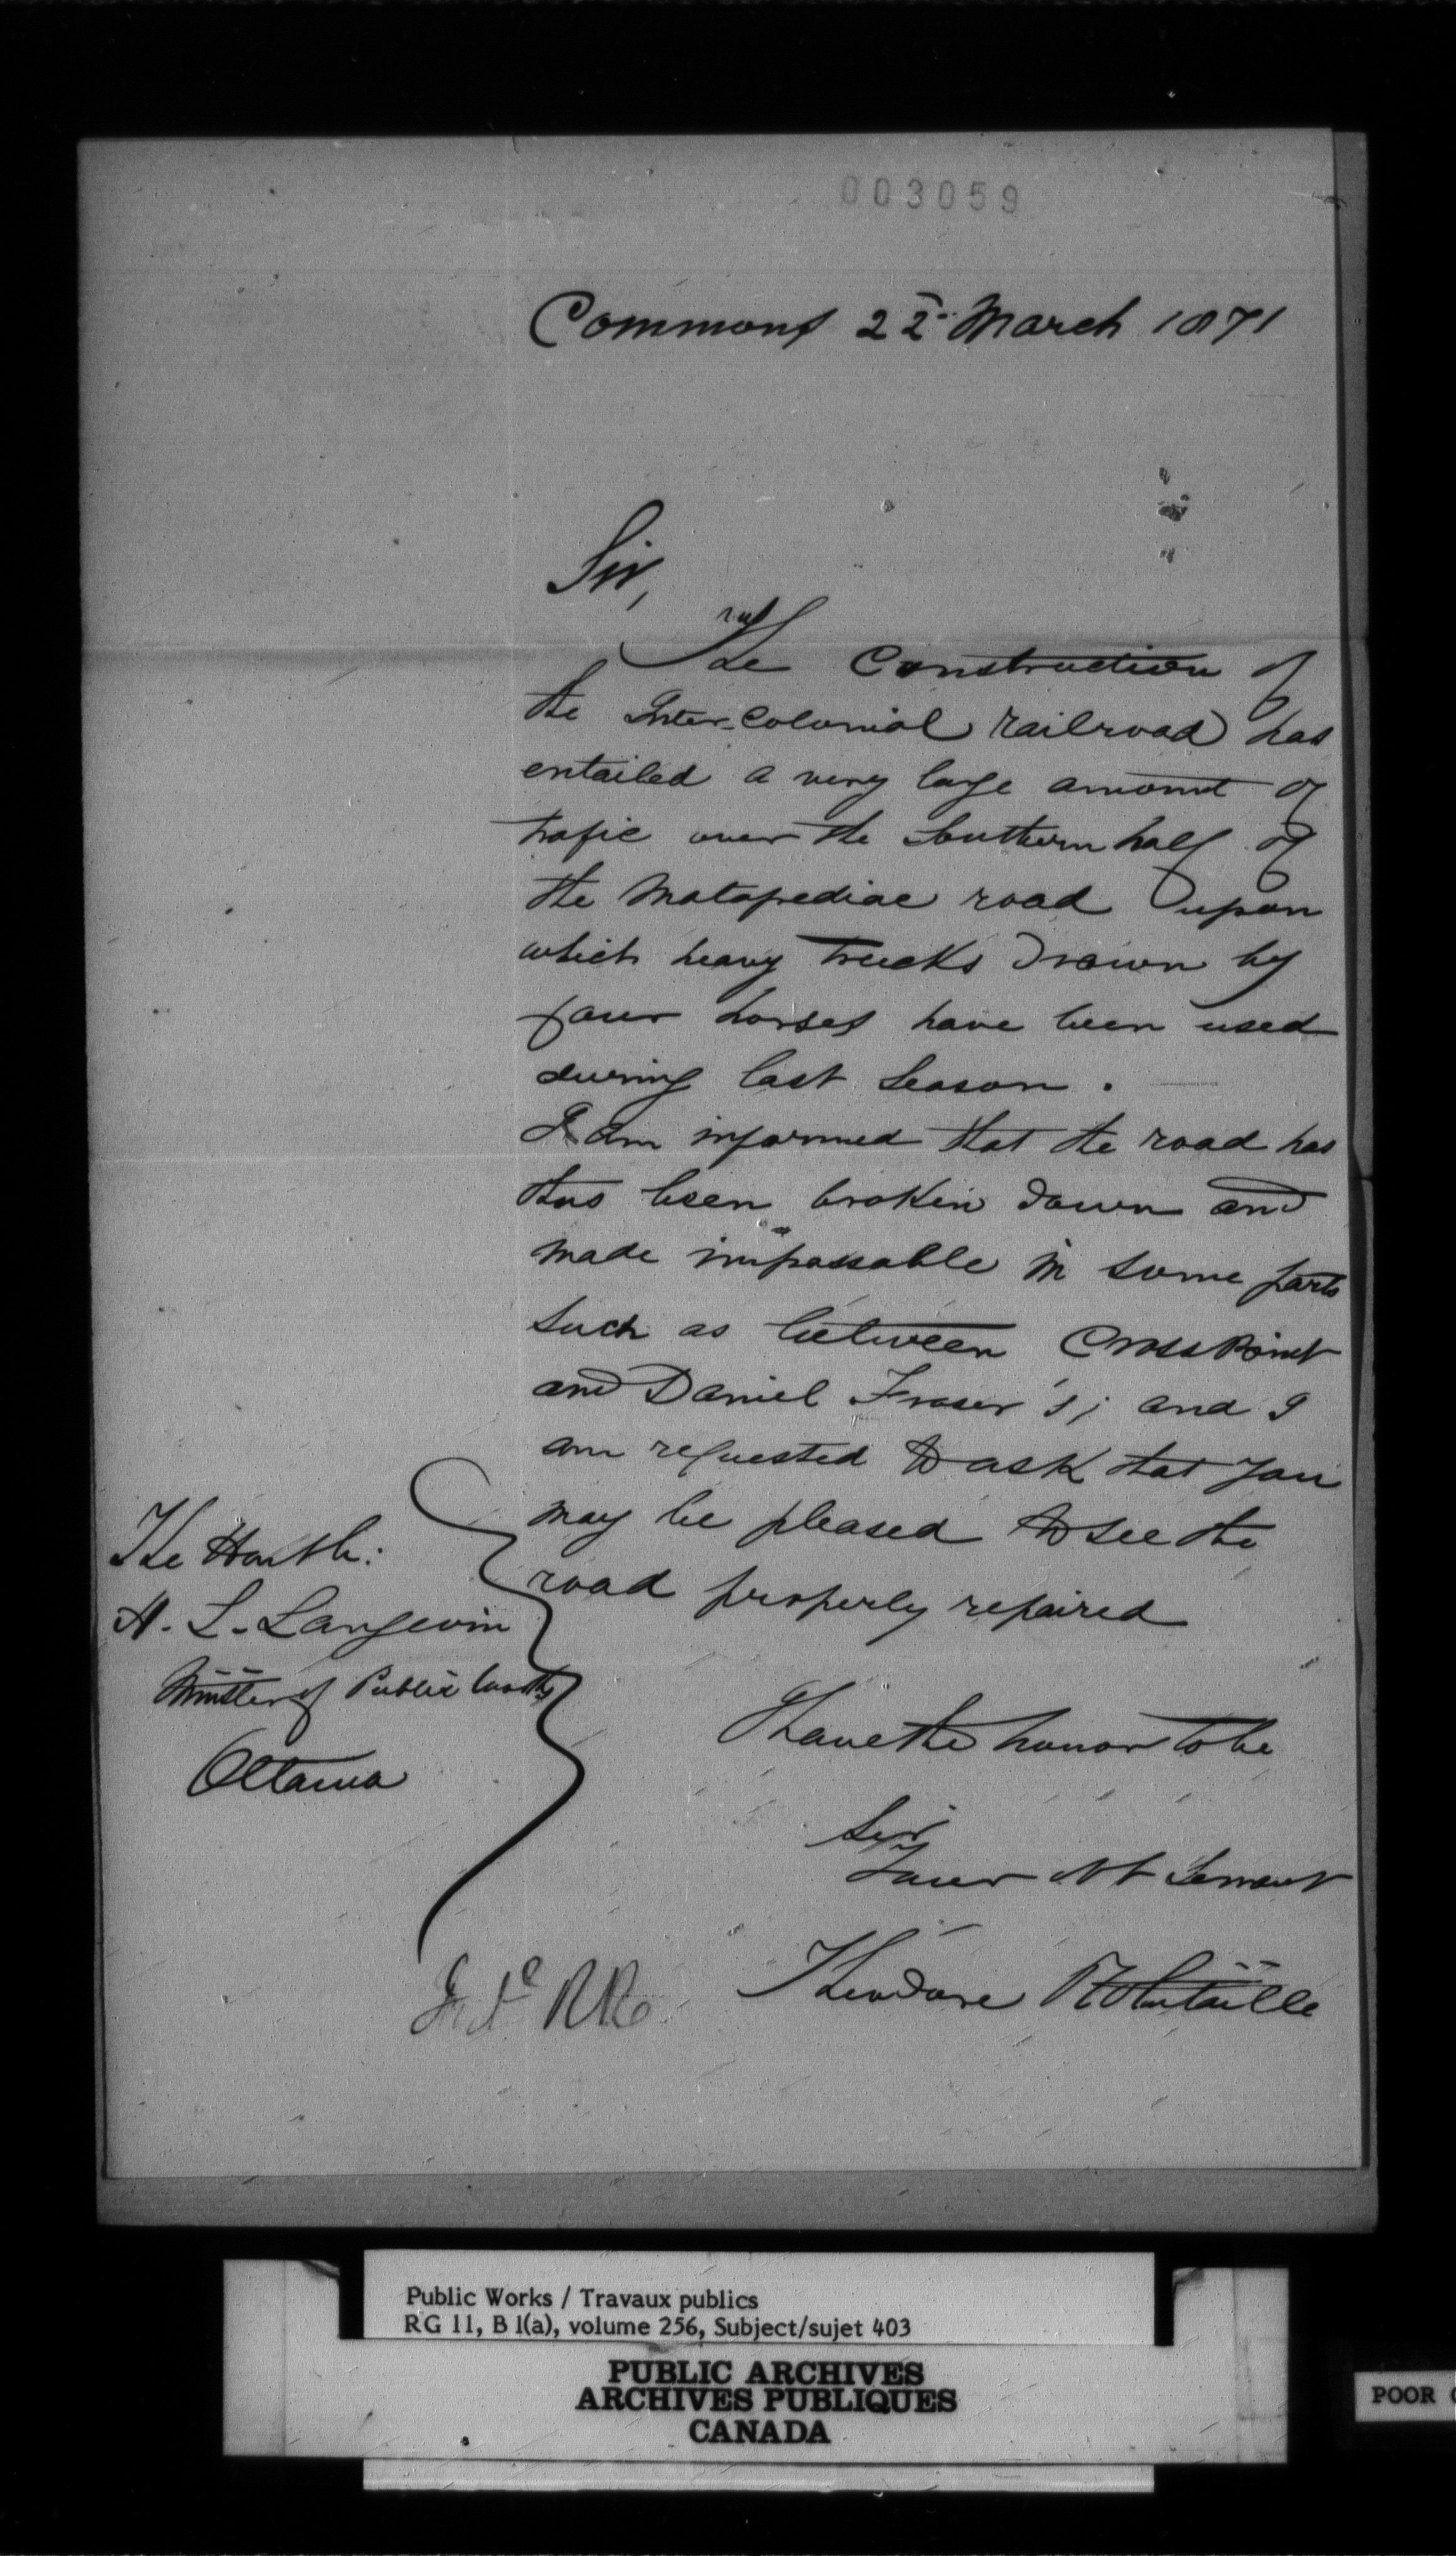 003059
Commons 22 March 1871
Sir,
The Construction of
the Inter-Colonial railroad has
entailed a very large amount of
trafic over the Southern half of
the Matapediac road upon
which heavy trucks drawn by
four horses have been used
during last Season.
I am informed that the road has
thus been broken down and
made impassable in some parts
such as between Cross Point
and Daniel Fraser's; and I
am requested to ask that you
may be pleased to see the
road properly repaired
I have the honor to be
Sir
Your Obt Servant
Theodore Robitaille
The Honble:
H. L. Langevin
Minister of Public Works
Ottawa
RR
Public Works / Travaux publics
RG 11, B 1(a), volume 256, Subject/sujet 403
PUBLIC ARCHIVES
ARCHIVES PUBLIQUES
CANADA
POOR